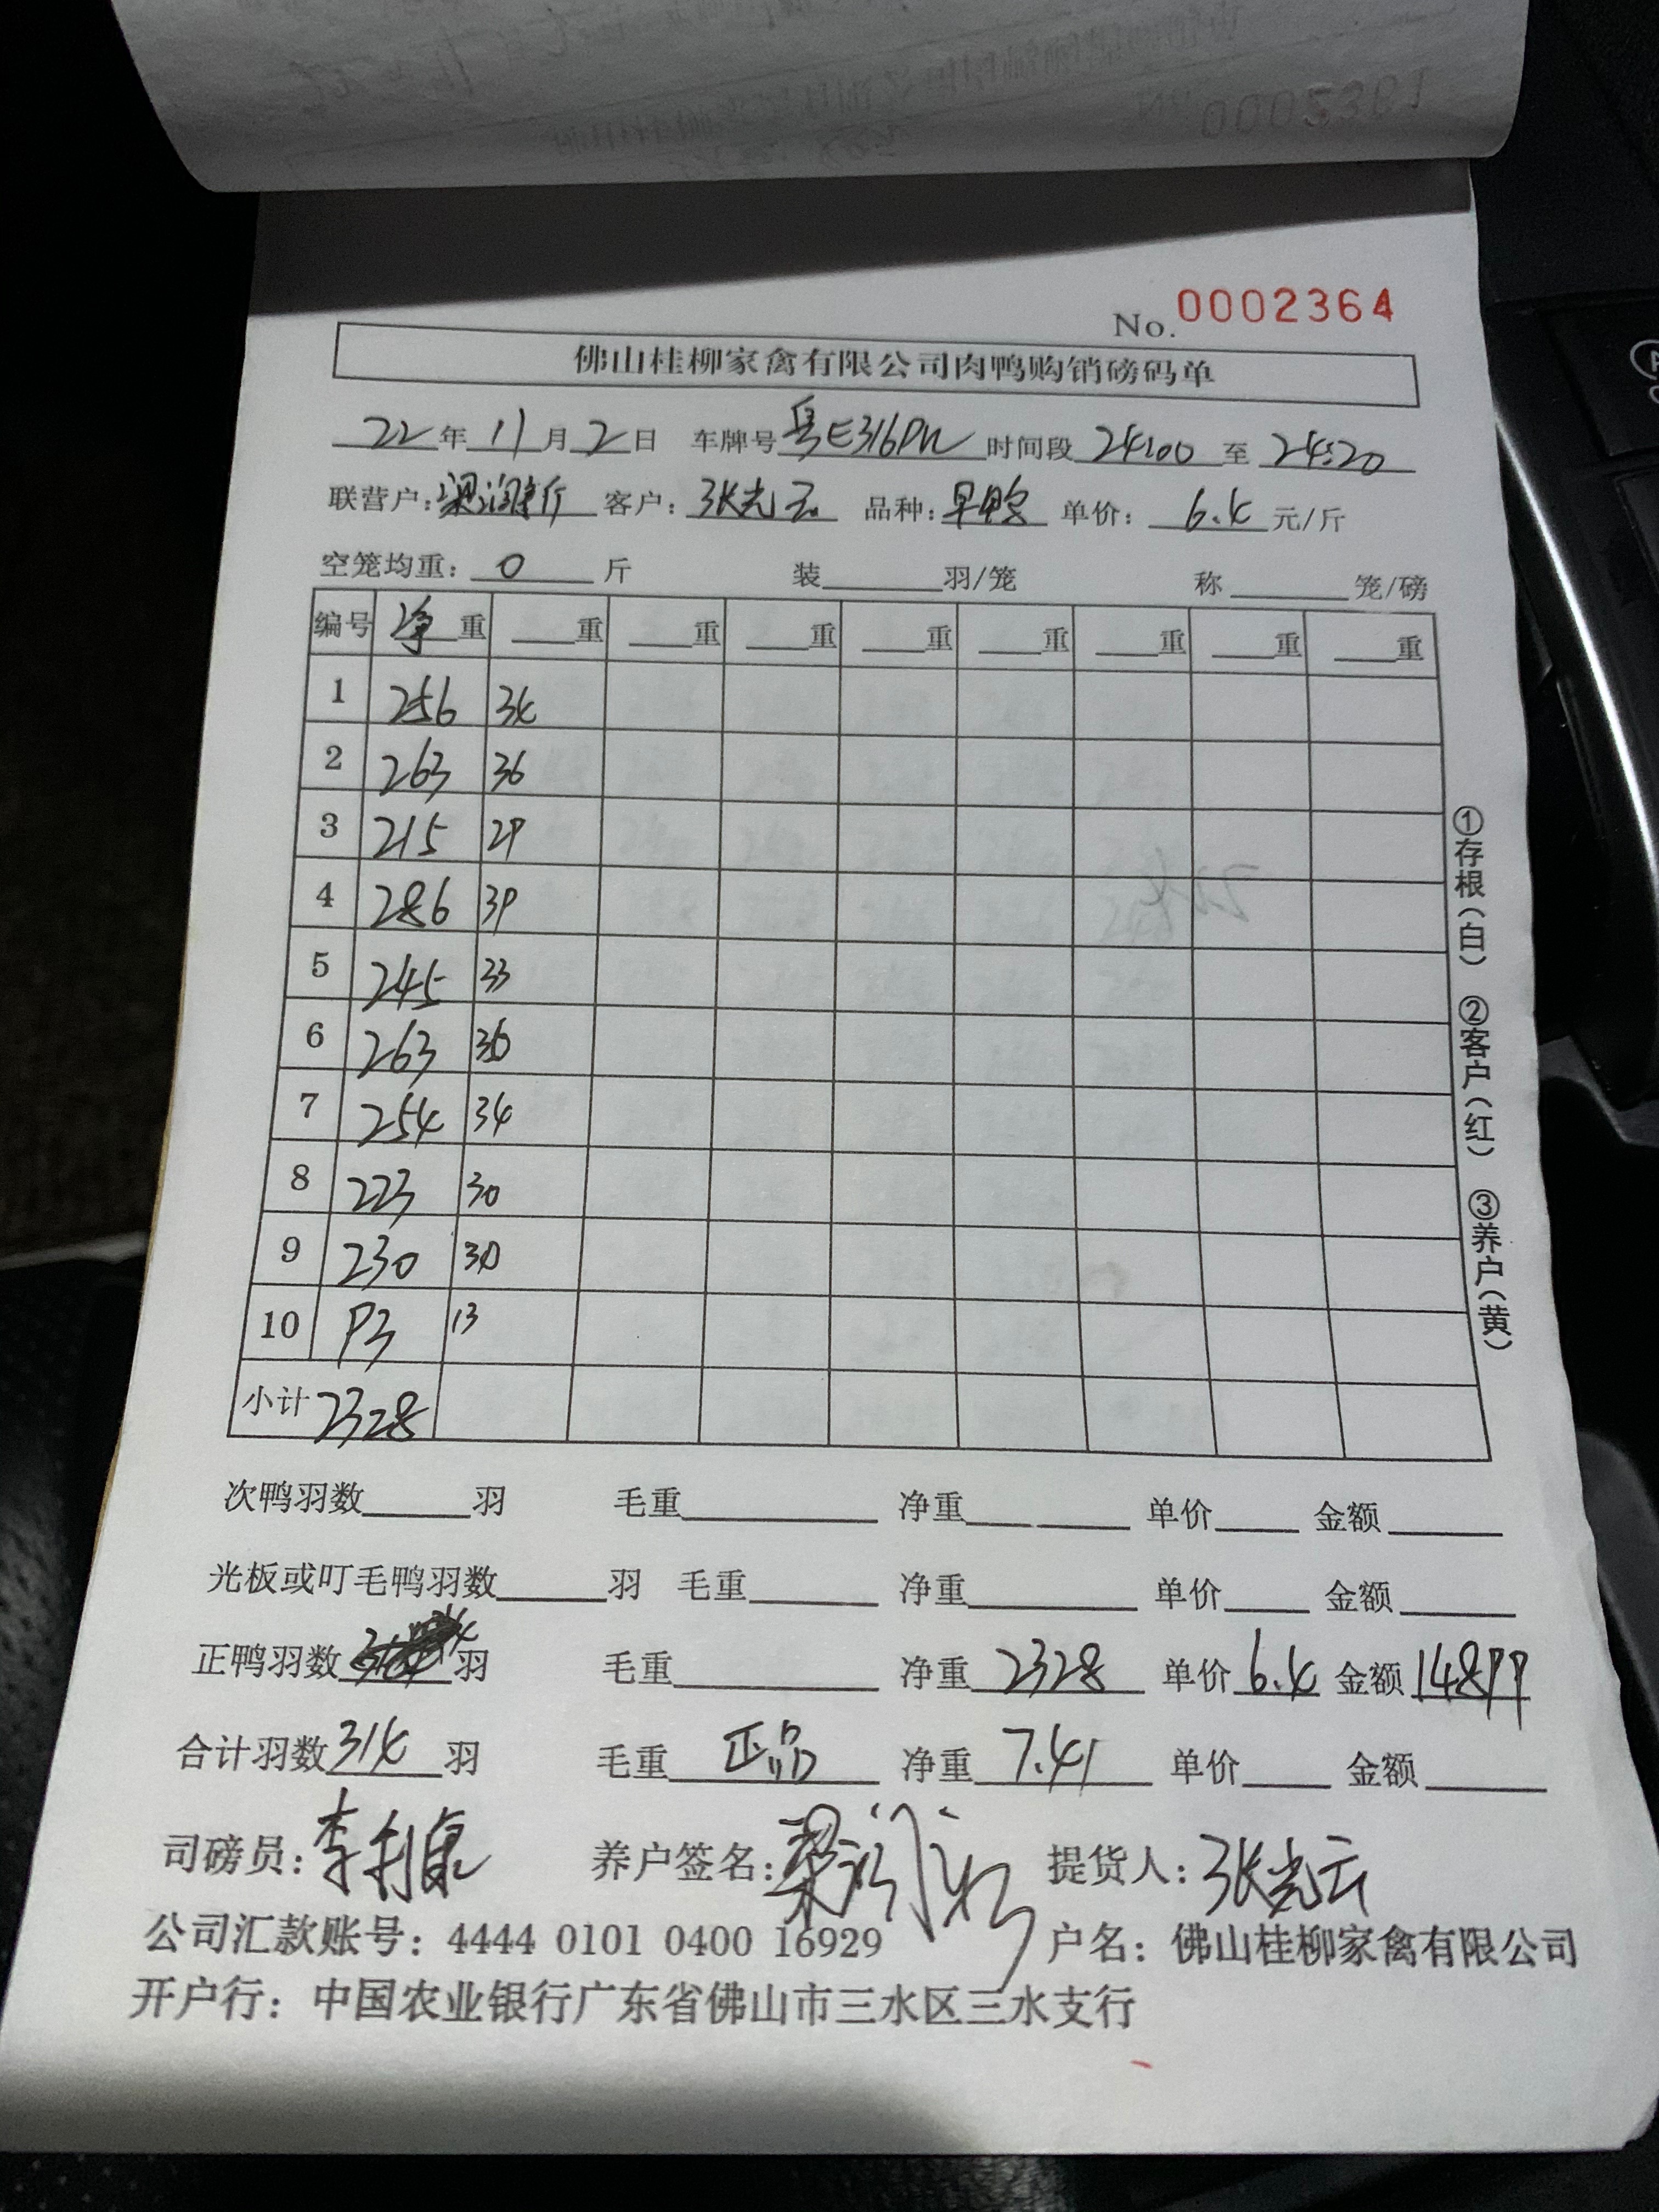 No. 0002364
佛山桂柳家禽有限公司肉鸭购销磅码单
22年11月2日 车牌号 粤E316PN 时间段 24:00 至 24:20
联营户: 客户: 张光云 品种: 早鸭 单价: 6.4 元/斤
空笼均重: 0 斤 装 羽/笼 称 笼/磅
编号 净重 重 重 重 重 重 重 重 重
1 256 34
2 263 36
3 215 29
4 286 39
5 245 33
6 263 36
7 254 34
8 223 30
9 230 30
10 93 13
小计 2328
次鸭羽数 羽 毛重 净重 单价 金额
光板或叮毛鸭羽数 羽 毛重 净重 单价 金额
正鸭羽数 羽 毛重 净重 2328 单价 6.4 金额 14899
合计羽数 314 羽 毛重 正品 净重 7.41 单价 金额
司磅员: 李利康 养户签名: 提货人: 张光云
公司汇款账号: 4444 0101 0400 16929 户名: 佛山桂柳家禽有限公司
开户行: 中国农业银行广东省佛山市三水区三水支行
①存根(白) ②客户(红) ③养户(黄)